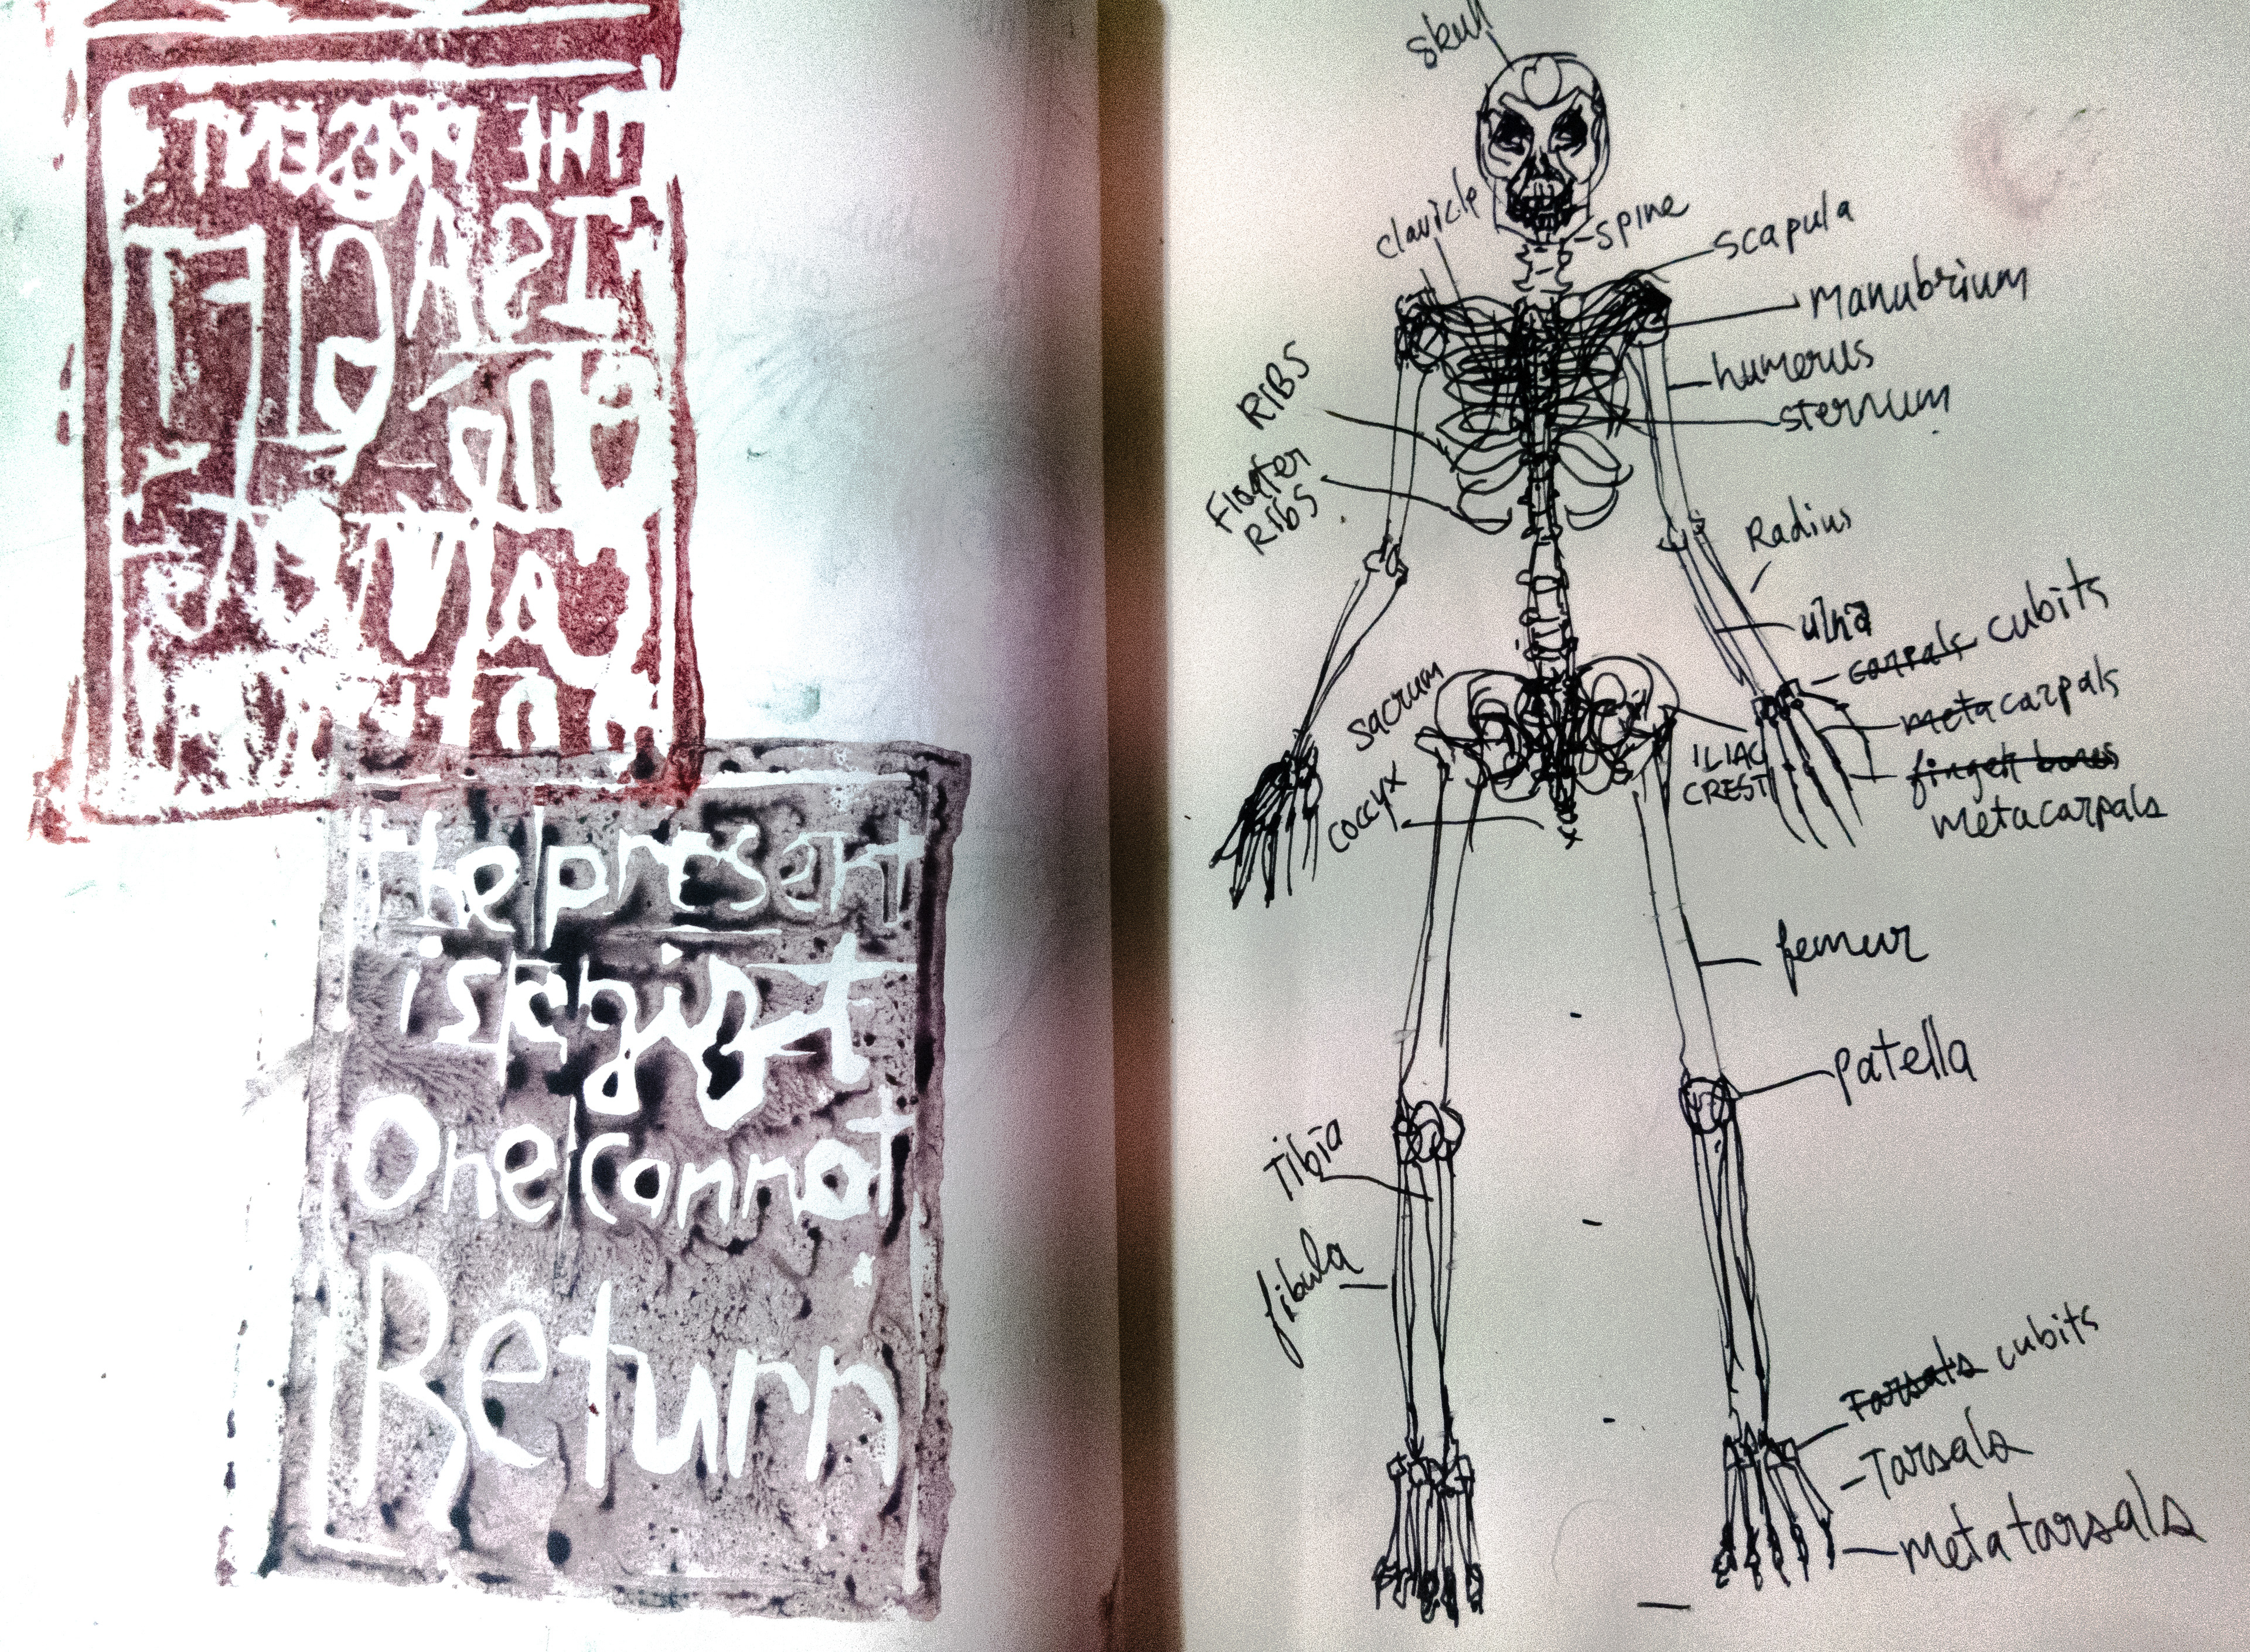 THE PRESENT
IS A GIFT
One
cannot
return
the present
is a gift
One cannot
Return
skull
clavicle
spine
scapula
Manubrium
humerus
sternum
RIBS
Floater
RIbS
Radius
ulna
carpals cubits
metacarpals
finger bones
metacarpals
sacrum
ILIAC
CREST
coccyx
femur
patella
Tibia
fibula
Tarsals cubits
Tarsals
Metatarsals